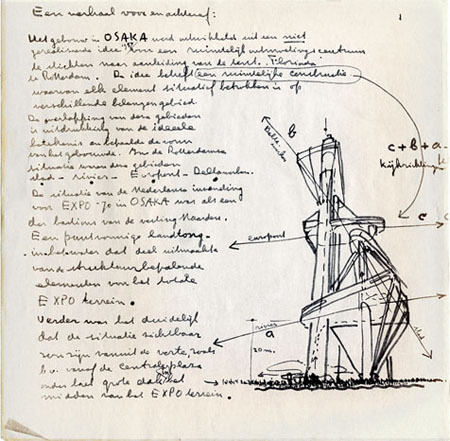 Een verhaal voor en achteraf: 1
Het gebouw in OSAKA werd ontwikkeld uit een niet
gerealiseerde idee voor een ruimtelijk ontmoetingscentrum
te stichten naar aanleiding van de tent. Floriade
te Rotterdam. De idee betreft een ruimtelijke constructie
waarvan elk element situatief betrokken is op
verschillende belangengebied.
De overlapping van deze gebieden
is uitdrukking van de ideeële
betekenis en bepaalde de vorm
van het gebouwde. In de Rotterdamse
situatie waren deze gebieden
stad - rivier - Europort - Deltawerken.
De situatie van de Nederlandse inzending
voor EXPO-70 in OSAKA was als een
der bastions van de vesting Naarden.
Een puntvormige landtong-
dat deel uitmaakte
van de structuur bepalende
elementen van het totale
EXPO terrein.
Verder was het duidelijk
dat de situatie zichtbaar
zou zijn vanuit de verte, zoals
b.v. vanaf de centrale plaza
onder het grote dak het
midden van het EXPO terrein.
b
c + b + a
kijkrichting
c
europort
a
rivier
20 m.
stad